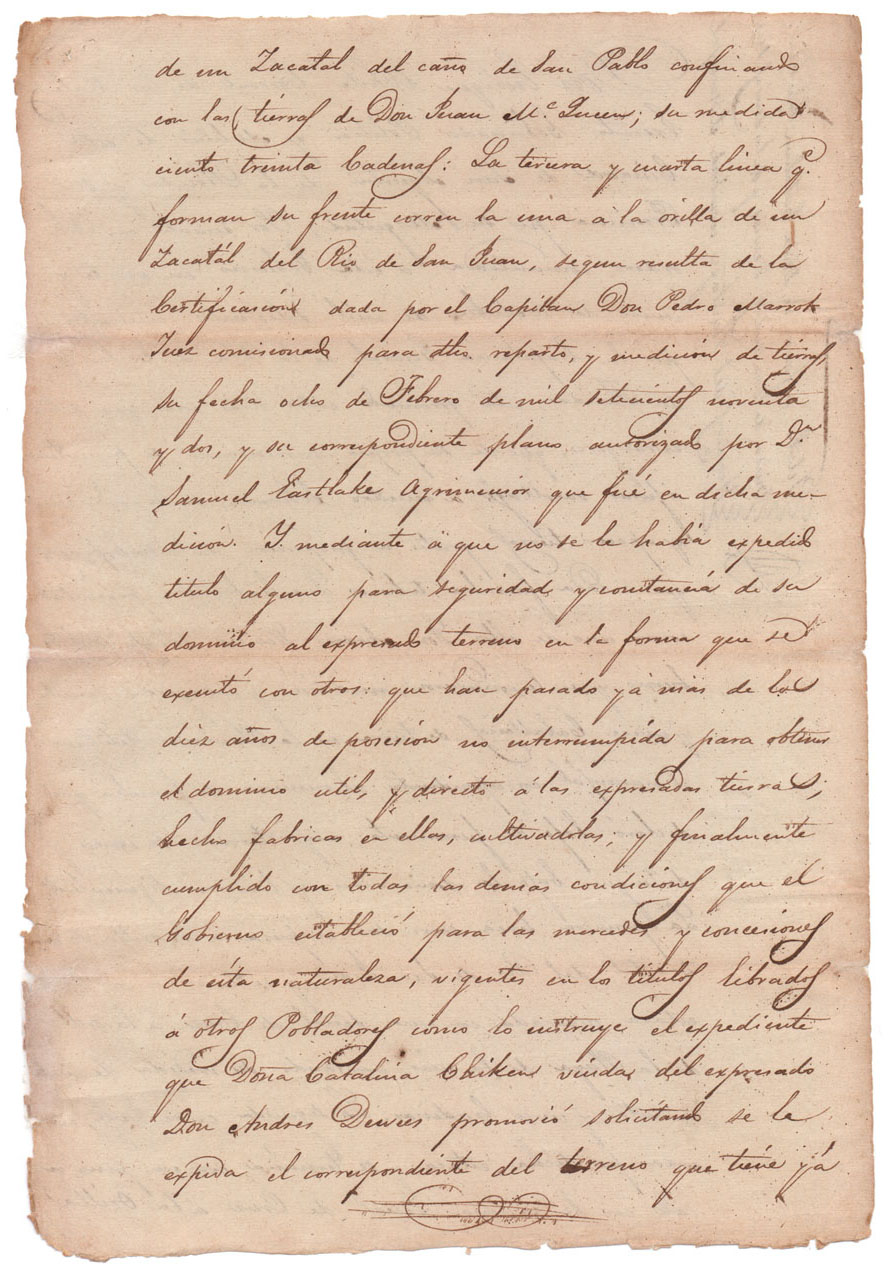 de un Zacatal del caño de San Pablo confinando
con las tierras de Don Juan Mc. Queen; su medida
ciento treinta Cadenas: La tercera y cuarta linea q.e
forman su frente corren la una à la orilla de un
Zacatál del Rio de San Juan, segun resulta de la
Certificasión dada por el Capitan Don Pedro Marrot
Juez comisionado para dho. reparto, y medición de tierras,
su fecha ocho de Febrero de mil setecientos noventa
y dos, y su correspondiente plano autorizado por D.n
Samuel Eastlake Agrimensor que fué en dicha me-
dición. Y mediante à que no se le había expedido
titulo alguno para seguridad y constancia de su
dominio al expresado terreno en la forma que se
executó con otros: que han pasado yá mas de los
diez años de posesión no interrumpida para obtener
el dominio util, y directo á las expresadas tierras;
hecho fabricas en ellas, cultivadolas; y finalmente
cumplido con todas las demás condiciones que el
Gobierno estableció para las mercedes y concesiones
de ésta naturaleza, vigentes en los titulos librados
á otros Pobladores como lo instruye el expediente
que Doña Catalina Chiken viuda del expresado
Don Andres Dewees promovió solicitando se le
expida el correspondiente del terreno que tiene yá